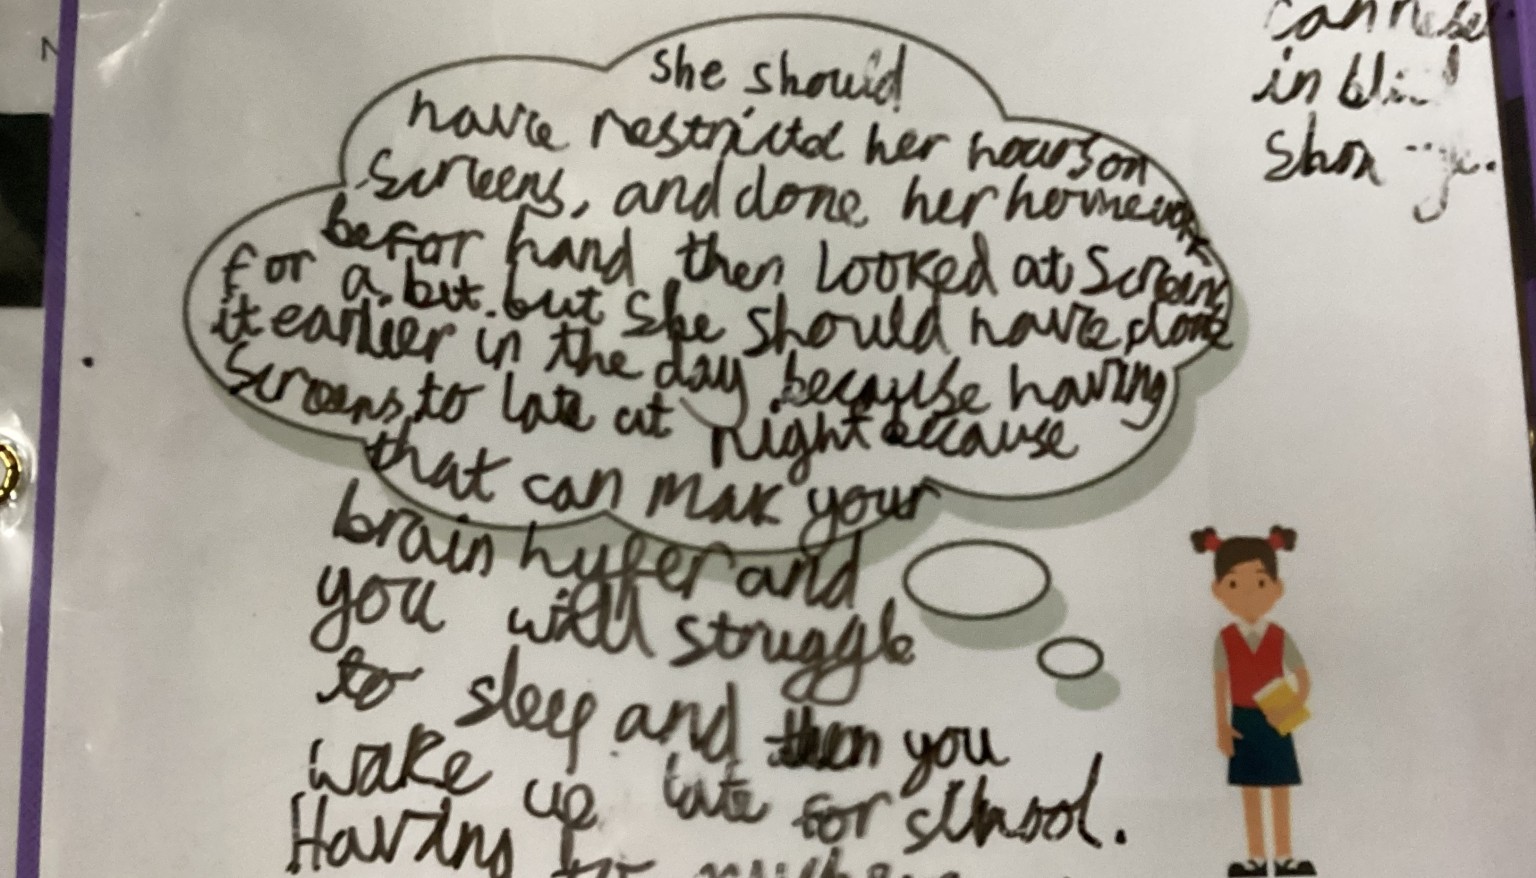 she should
have restricted her hours on
screens, and done her homework
befor hand then looked at Screens
for a bit. but she should have done
it earlier in the day because having
screens to late at night because
that can mak your
brain hyper and
you will struggle
to sleep and then you
wake up late for school.
Having to
in